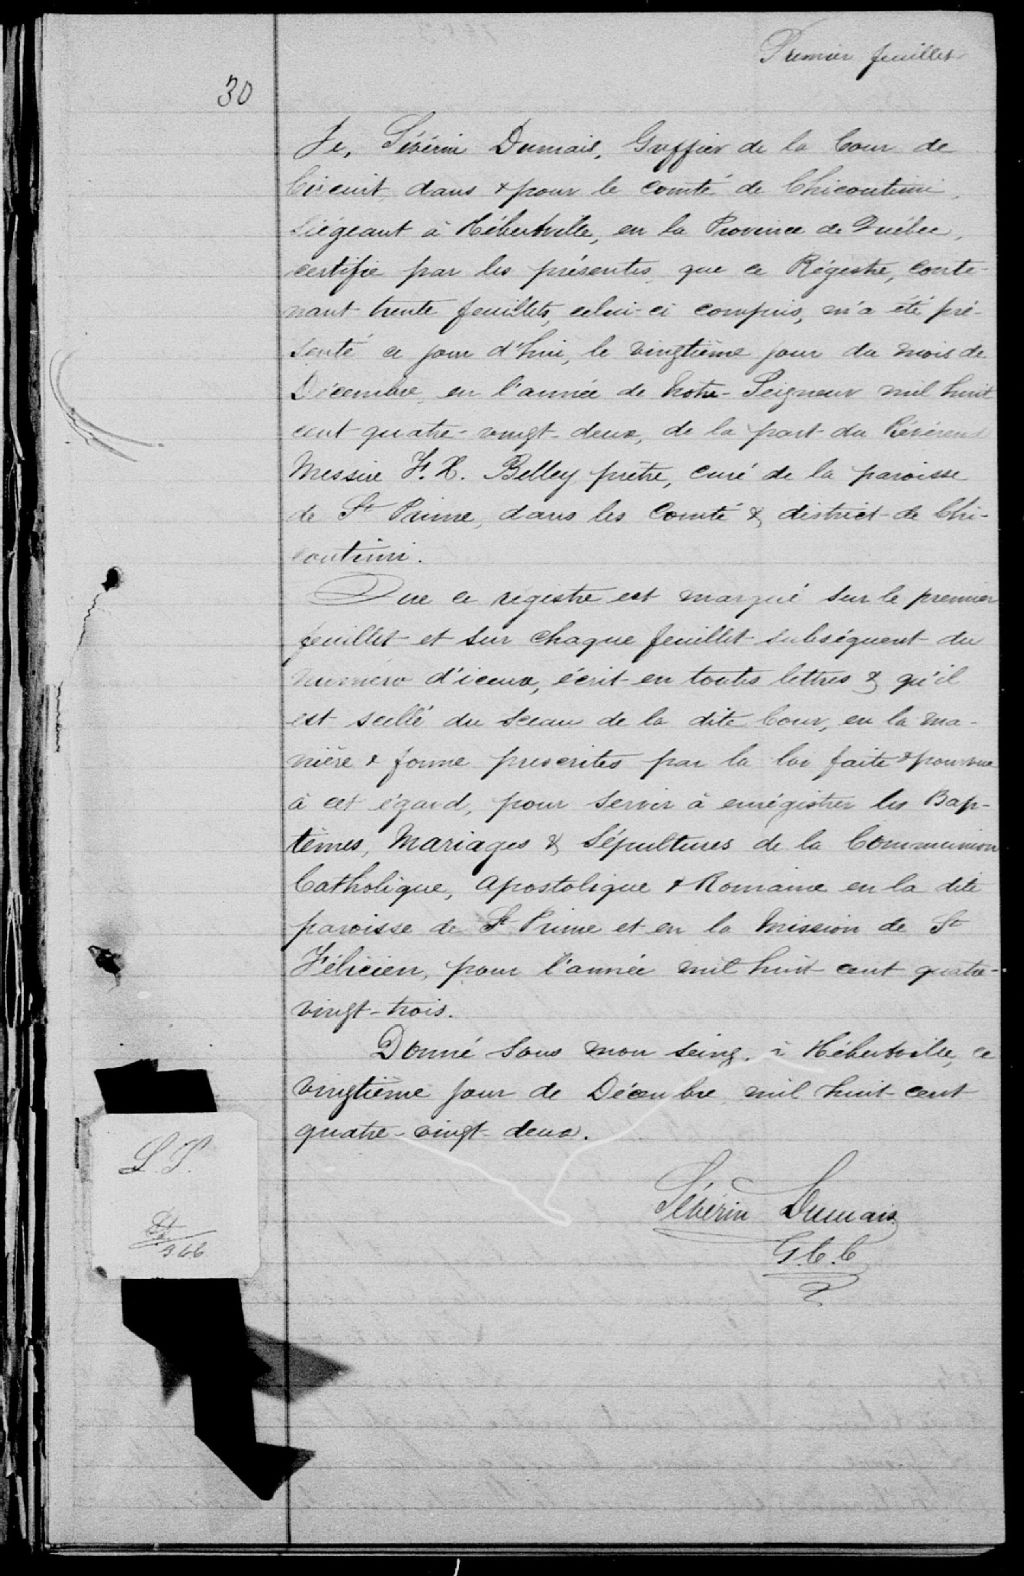 Premier feuillet
30
Je, Sévérin Dumais, Greffier de la Cour de
Circuit, dans & pour le comté de Chicoutimi,
siégeant à Hébertville, en la Province de Québec,
certifie par les présentes, que ce Régistre, conte-
nant trente feuillets, celui-ci compris, m'a été pré-
senté ce jour d'hui, le vingtième jour du mois de
Décembre, en l'année de Notre-Seigneur mil huit
cent quatre-vingt-deux, de la part du Révérend
Messire F. X. Belley prêtre, curé de la paroisse
de St Prime, dans les Comté & district de Chi-
coutimi.
Que ce registre est marqué sur le premier
feuillet et sur chaque feuillet subséquent du
numéro d'iceux, écrit en toutes lettres & qu'il
est scellé du sceau de la dite Cour, en la ma-
nière & forme prescrites par la loi faite & pourvue
à cet égard, pour servir à enrégistrer les Bap-
têmes, Mariages & Sépultures de la Communion
Catholique, Apostolique & Romaine en la dite
paroisse de St Prime et en la Mission de St
Félicien, pour l'année mil huit cent quatre-
vingt-trois.
Donné sous mon seing, à Hébertville, ce
vingtième jour de Décembre mil huit cent
quatre-vingt deux.
Sévérin Dumais
G.C.C
L.S.